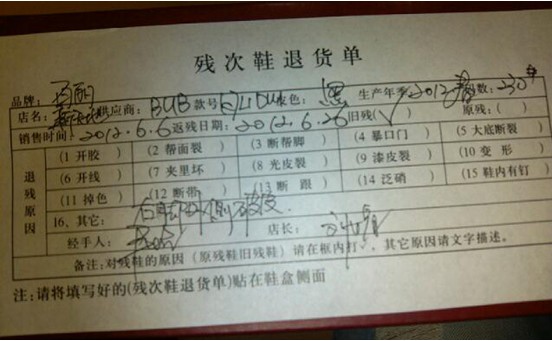 残次鞋退货单
品牌：
店名： 供应商：BUB 款号 色：黑 生产年季：2012春 码数：230
销售时间：2012.6.6 返残日期：2012.6.26 旧残(√) 原残：( )
退残原因
(1 开胶 ) (2 帮面裂 ) (3 断帮脚 ) (4 暴口门 ) (5 大底断裂 )
(6 开线 ) (7 夹里坏 ) (8 光皮裂 ) (9 漆皮裂 ) (10 变 形 )
(11 掉色 ) (12 断带 ) (13 断 跟 ) (14 泛硝 ) (15 鞋内有钉 )
16、其它：右 侧破皮.
经手人： 店长：
备注：对残鞋的原因（原残鞋旧残鞋）请在框内打√，其它原因请文字描述。
注：请将填写好的(残次鞋退货单)贴在鞋盒侧面